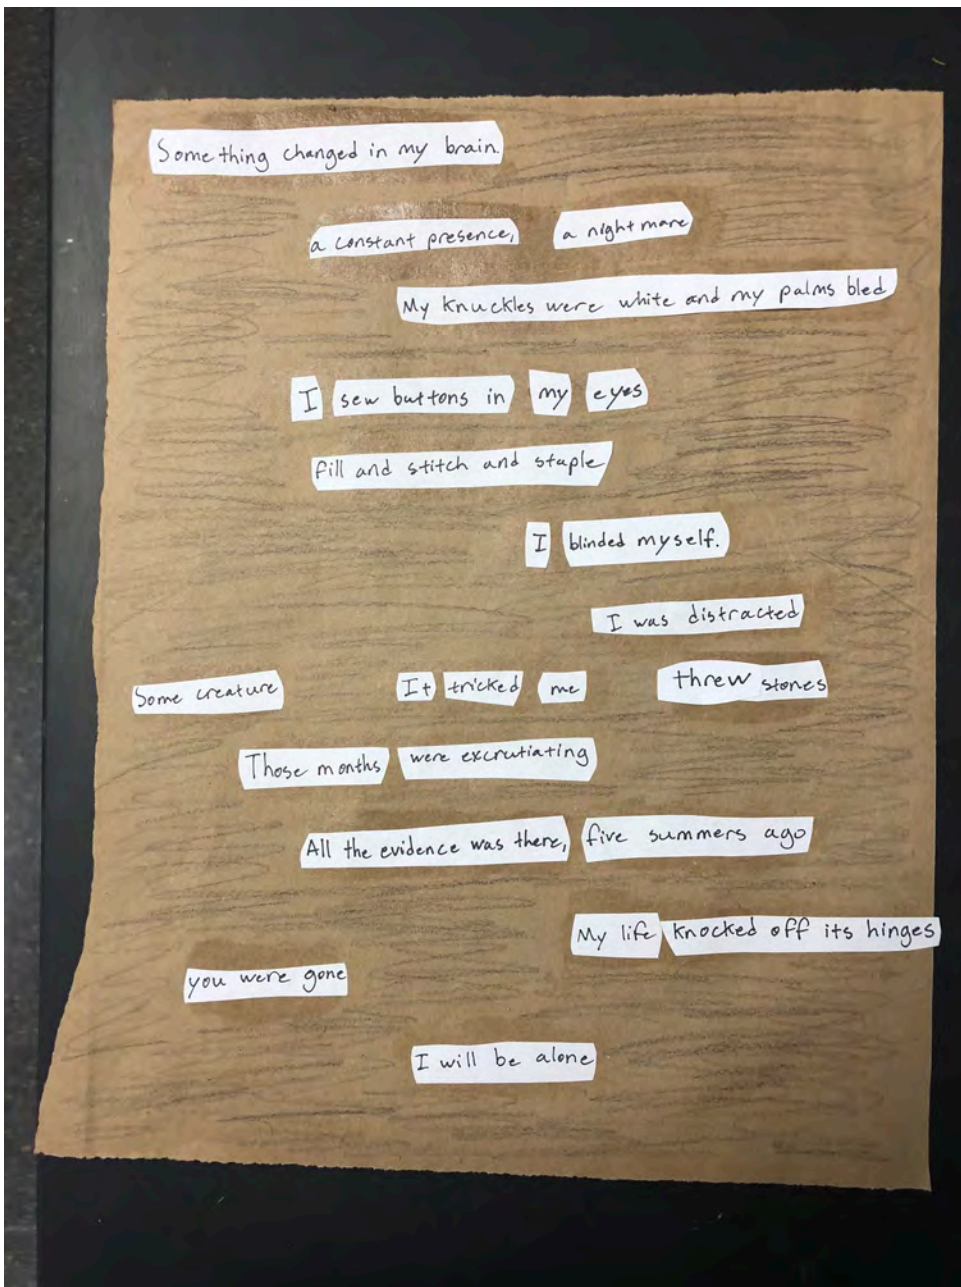 Something changed in my brain.
a constant presence, a nightmare
My knuckles were white and my palms bled
I sew buttons in my eyes
fill and stitch and staple
I blinded myself.
I was distracted
Some creature It tricked me threw stones
Those months were excrutiating
All the evidence was there, five summers ago
My life knocked off its hinges
you were gone
I will be alone